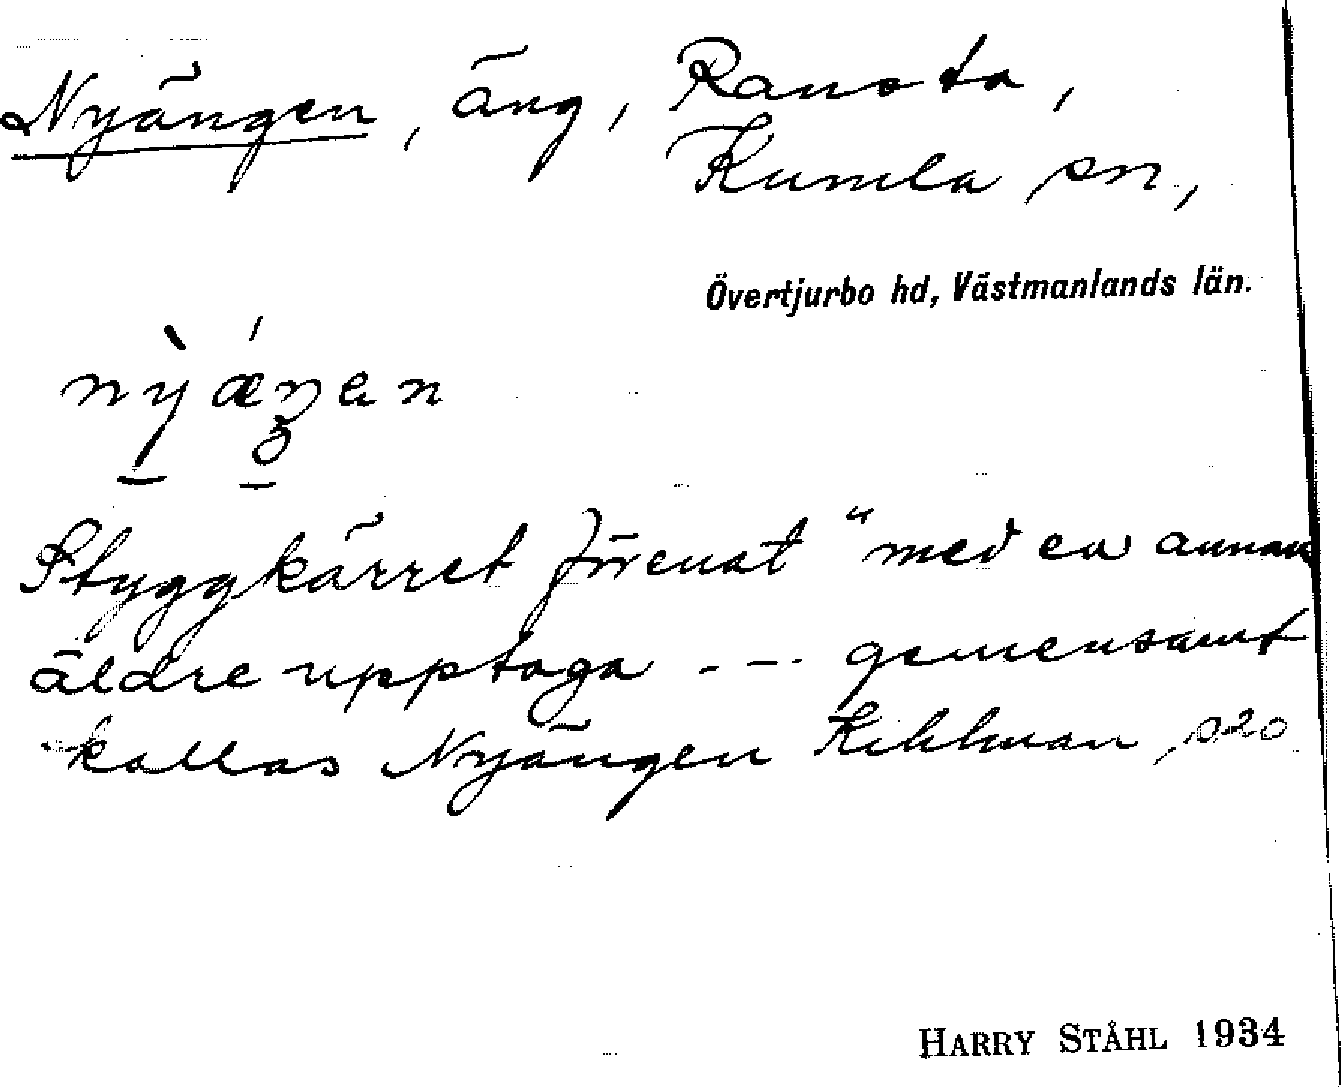 Nyängen, äng, Ransta,
Kumla sn,
Övertjurbo hd, Västmanlands län.
Styggkärret förenat "med en annan
äldre upptaga - - - gemensamt
kallas Nyängen Kihlman, s 20
HARRY STÅHL 1934